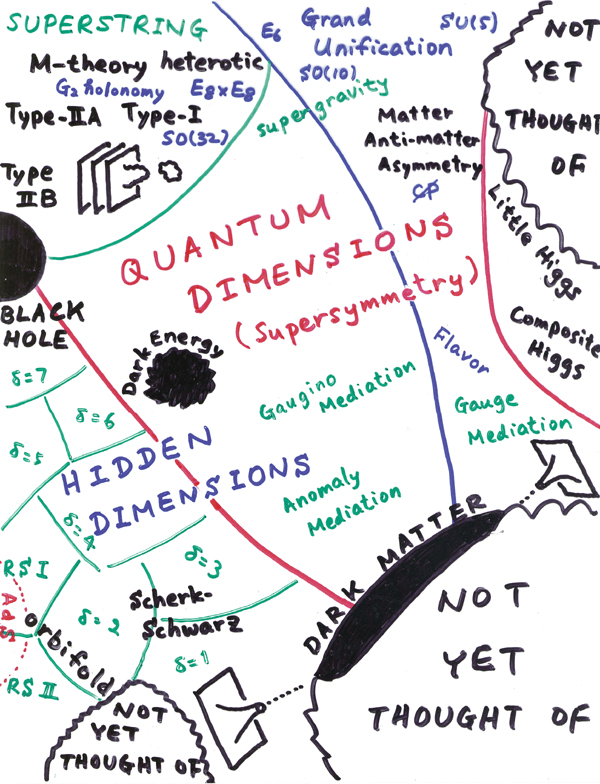 SUPERSTRING
M-theory heterotic
G2 holonomy E8xE8
Type-IIA Type-I
SO(32)
Type
IIB
E6 Grand SU(5)
Unification
SO(10)
supergravity
Matter
Anti-matter
Asymmetry
CP
NOT
YET
THOUGHT
OF
Little Higgs
Composite
Higgs
QUANTUM
DIMENSIONS
(Supersymmetry)
BLACK
HOLE
Dark Energy
Flavor
Gaugino
Mediation
Gauge
Mediation
Anomaly
Mediation
δ=7
δ=6
δ=5
HIDDEN
DIMENSIONS
δ=4
δ=3
DARK MATTER
RS I
AdS
RS II
orbifold
δ=2
Scherk-
Schwarz
δ=1
NOT
YET
THOUGHT OF
NOT
YET
THOUGHT OF